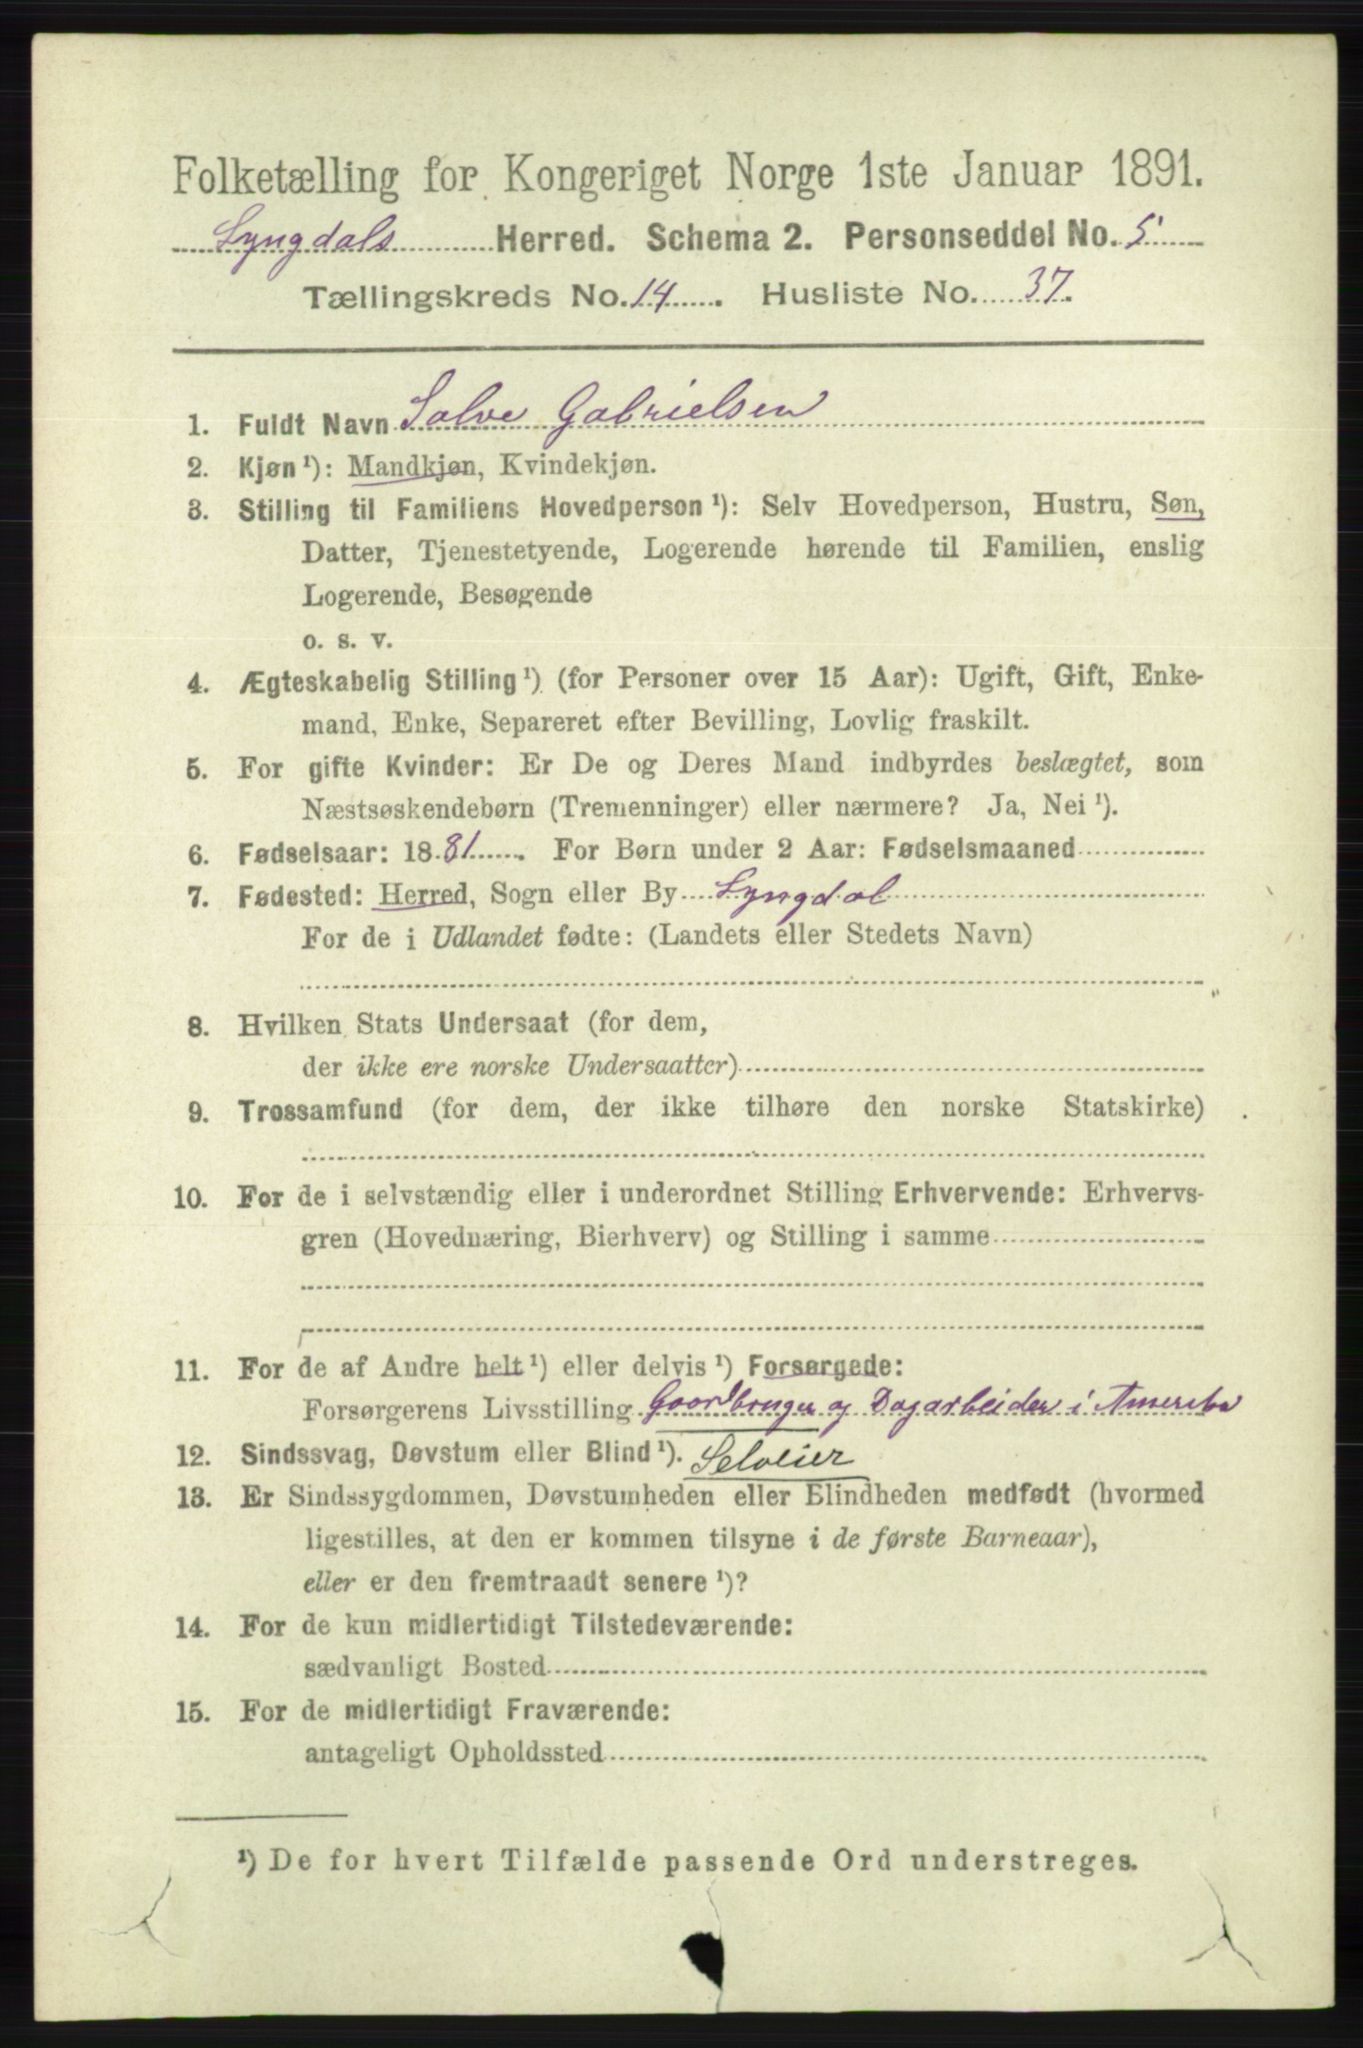 Folketælling for Kongeriget Norge 1ste Januar 1891.
Lyngdals Herred. Schema 2. Personseddel No. 5
Tællingskreds No. 14. Husliste No. 37.
1. Fuldt Navn Salve Gabrielsen
2. Kjøn ¹): Mandkjøn, Kvindekjøn.
3. Stilling til Familiens Hovedperson ¹): Selv Hovedperson, Hustru, Søn,
Datter, Tjenestetyende, Logerende hørende til Familien, enslig
Logerende, Besøgende
o. s. v.
4. Ægteskabelig Stilling ¹) (for Personer over 15 Aar): Ugift, Gift, Enke-
mand, Enke, Separeret efter Bevilling, Lovlig fraskilt.
5. For gifte Kvinder: Er De og Deres Mand indbyrdes beslægtet, som
Næstsøskendebørn (Tremenninger) eller nærmere? Ja, Nei ¹).
6. Fødselsaar: 1881. For Børn under 2 Aar: Fødselsmaaned
7. Fødested: Herred, Sogn eller By Lyngdal
For de i Udlandet fødte: (Landets eller Stedets Navn)
8. Hvilken Stats Undersaat (for dem,
der ikke ere norske Undersaatter)
9. Trossamfund (for dem, der ikke tilhøre den norske Statskirke)
10. For de i selvstændig eller i underordnet Stilling Erhvervende: Erhvervs-
gren (Hovednæring, Bierhverv) og Stilling i samme
11. For de af Andre helt ¹) eller delvis ¹) Forsørgede:
Forsørgerens Livsstilling Gaardbruger og Dagarbeider i Amerika
12. Sindssvag, Døvstum eller Blind ¹). Selveier
13. Er Sindssygdommen, Døvstumheden eller Blindheden medfødt (hvormed
ligestilles, at den er kommen tilsyne i de første Barneaar),
eller er den fremtraadt senere ¹)?
14. For de kun midlertidigt Tilstedeværende:
sædvanligt Bosted
15. For de midlertidigt Fraværende:
antageligt Opholdssted
¹) De for hvert Tilfælde passende Ord understreges.